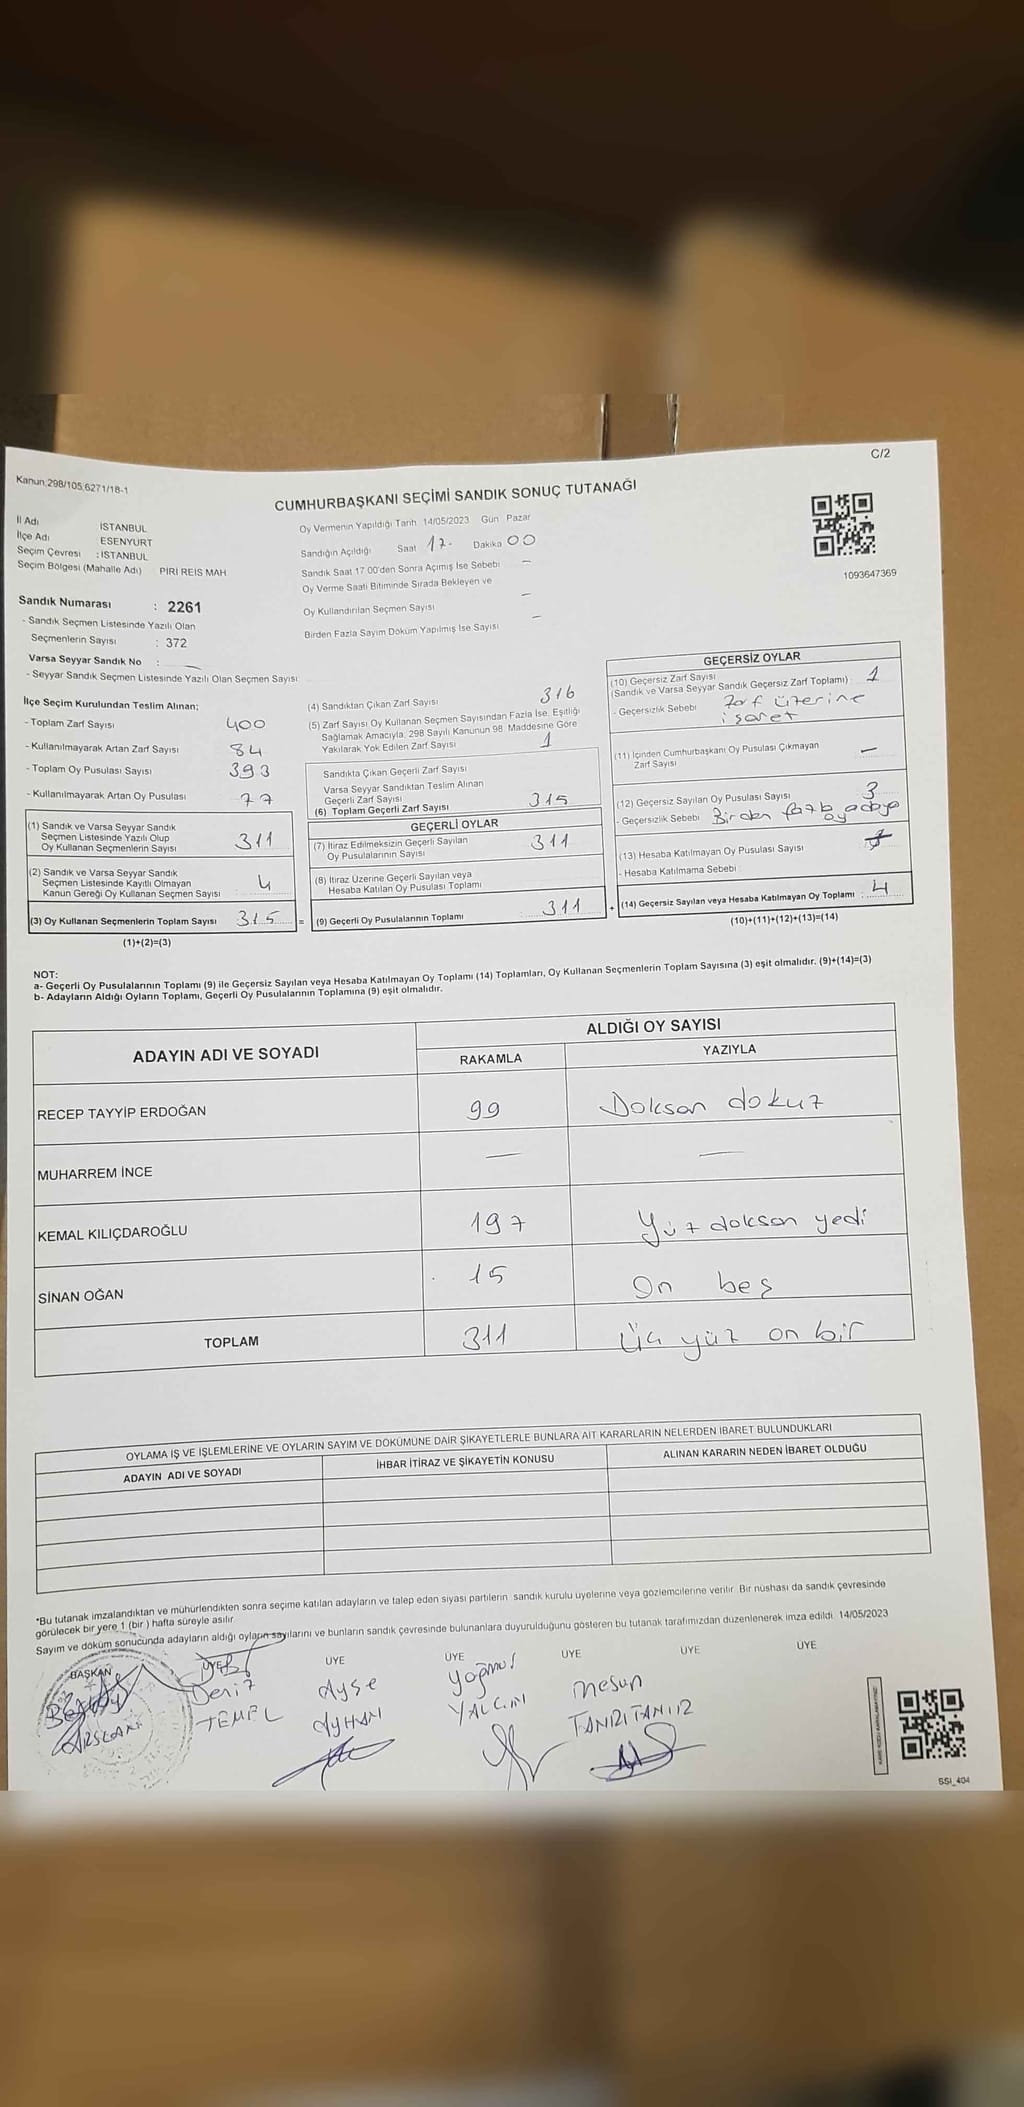 C/2
Kanun.298/105,6271/18-1
CUMHURBAŞKANI SEÇİMİ SANDIK SONUÇ TUTANAĞI
İl Adı İSTANBUL
İlçe Adı ESENYURT
Seçim Çevresi : İSTANBUL
Seçim Bölgesi (Mahalle Adı) PİRİ REİS MAH
Sandık Numarası : 2261
- Sandık Seçmen Listesinde Yazılı Olan
Seçmenlerin Sayısı : 372
Varsa Seyyar Sandık No : —
- Seyyar Sandık Seçmen Listesinde Yazılı Olan Seçmen Sayısı:
Oy Vermenin Yapıldığı Tarih 14/05/2023 Gün Pazar
Sandığın Açıldığı Saat 17- Dakika 00
Sandık Saat 17.00'den Sonra Açımış İse Sebebi —
Oy Verme Saati Bitiminde Sırada Bekleyen ve
Oy Kullandırılan Seçmen Sayısı —
Birden Fazla Sayım Döküm Yapılmış İse Sayısı —
1093647369
İlçe Seçim Kurulundan Teslim Alınan;
- Toplam Zarf Sayısı 400
- Kullanılmayarak Artan Zarf Sayısı 84
- Toplam Oy Pusulası Sayısı 393
- Kullanılmayarak Artan Oy Pusulası 77
(1) Sandık ve Varsa Seyyar Sandık
Seçmen Listesinde Yazılı Olup
Oy Kullanan Seçmenlerin Sayısı 311
(2) Sandık ve Varsa Seyyar Sandık
Seçmen Listesinde Kayıtlı Olmayan
Kanun Gereği Oy Kullanan Seçmen Sayısı 4
(3) Oy Kullanan Seçmenlerin Toplam Sayısı 315 =
(1)+(2)=(3)
(4) Sandıktan Çıkan Zarf Sayısı 316
(5) Zarf Sayısı Oy Kullanan Seçmen Sayısından Fazla İse, Eşitliği
Sağlamak Amacıyla, 298 Sayılı Kanunun 98. Maddesine Göre
Yakılarak Yok Edilen Zarf Sayısı 1
Sandıkta Çıkan Geçerli Zarf Sayısı
Varsa Seyyar Sandıktan Teslim Alınan
Geçerli Zarf Sayısı
(6) Toplam Geçerli Zarf Sayısı 315
GEÇERLİ OYLAR
(7) İtiraz Edilmeksizin Geçerli Sayılan
Oy Pusulalarının Sayısı 311
(8) İtiraz Üzerine Geçerli Sayılan veya
Hesaba Katılan Oy Pusulası Toplamı
(9) Geçerli Oy Pusulalarının Toplamı 311 +
GEÇERSİZ OYLAR
(10) Geçersiz Zarf Sayısı
(Sandık ve Varsa Seyyar Sandık Geçersiz Zarf Toplamı) : 1
- Geçersizlik Sebebi Zarf üzerine
işaret
(11) İçinden Cumhurbaşkanı Oy Pusulası Çıkmayan
Zarf Sayısı —
(12) Geçersiz Sayılan Oy Pusulası Sayısı 3
- Geçersizlik Sebebi Birden fazla adaya
oy
(13) Hesaba Katılmayan Oy Pusulası Sayısı
- Hesaba Katılmama Sebebi
(14) Geçersiz Sayılan veya Hesaba Katılmayan Oy Toplamı : 4
(10)+(11)+(12)+(13)=(14)
NOT:
a- Geçerli Oy Pusulalarının Toplamı (9) ile Geçersiz Sayılan veya Hesaba Katılmayan Oy Toplamı (14) Toplamları, Oy Kullanan Seçmenlerin Toplam Sayısına (3) eşit olmalıdır. (9)+(14)=(3)
b- Adayların Aldığı Oyların Toplamı, Geçerli Oy Pusulalarının Toplamına (9) eşit olmalıdır.
ADAYIN ADI VE SOYADI
ALDIĞI OY SAYISI
RAKAMLA YAZIYLA
RECEP TAYYİP ERDOĞAN 99 Doksan dokuz
MUHARREM İNCE — —
KEMAL KILIÇDAROĞLU 197 Yüz doksan yedi
SİNAN OĞAN 15 On beş
TOPLAM 311 Üç yüz on bir
OYLAMA İŞ VE İŞLEMLERİNE VE OYLARIN SAYIM VE DÖKÜMÜNE DAİR ŞİKAYETLERLE BUNLARA AİT KARARLARIN NELERDEN İBARET BULUNDUKLARI
ADAYIN ADI VE SOYADI İHBAR İTİRAZ VE ŞİKAYETİN KONUSU ALINAN KARARIN NEDEN İBARET OLDUĞU
*Bu tutanak imzalandıktan ve mühürlendikten sonra seçime katılan adayların ve talep eden siyasi partilerin sandık kurulu üyelerine veya gözlemcilerine verilir. Bir nüshası da sandık çevresinde
görülecek bir yere 1 (bir ) hafta süreyle asılır.
Sayım ve döküm sonucunda adayların aldığı oyların sayılarını ve bunların sandık çevresinde bulunanlara duyurulduğunu gösteren bu tutanak tarafımızdan düzenlenerek imza edildi. 14/05/2023
BAŞKAN ÜYE ÜYE ÜYE ÜYE ÜYE ÜYE
Deniz Ayşe Yağmur Mesun
ARSLAN TEMEL AYHAN YALÇIN TANIZITANIIZ
SSI_404